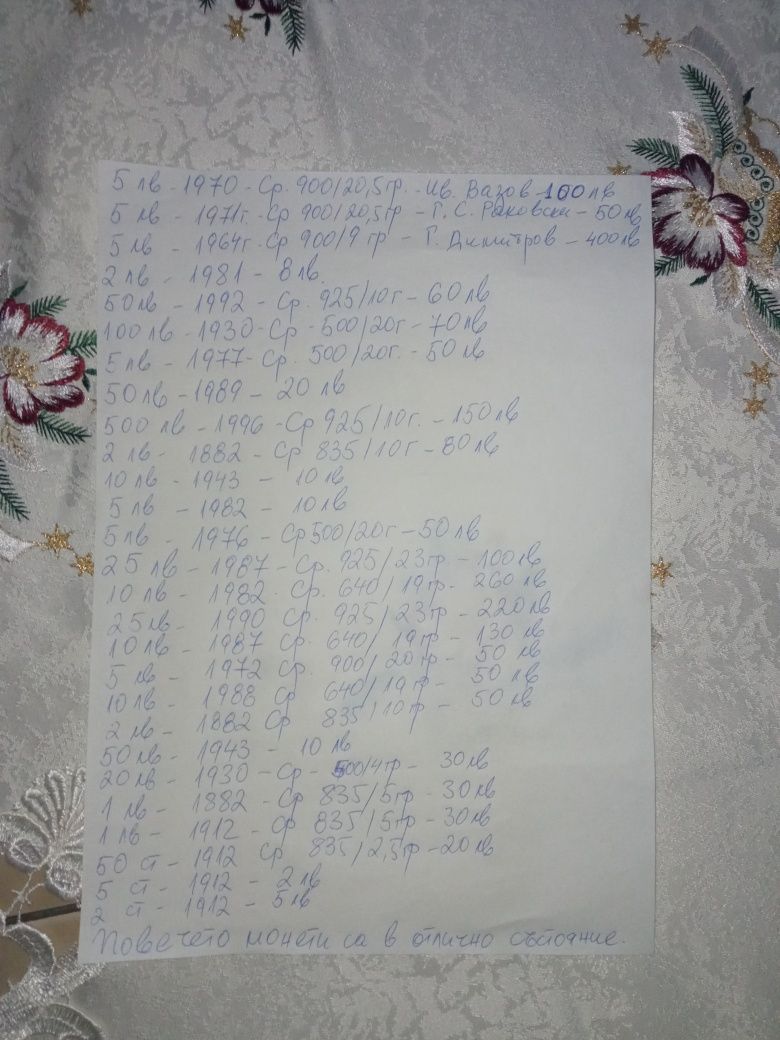 5 лв - 1970 - Ср. 900/20,5гр. - Ив. Вазов - 100 лв
5 лв - 1971г - Ср 900/20,5гр - Г. С. Раковски - 50 лв
5 лв - 1964г - Ср 900/9 гр - Г. Димитров - 400 лв
2 лв - 1981 - 8 лв.
50лв - 1992 - Ср. 925/10г - 60 лв
100 лв - 1930 - Ср - 500/20г - 70 лв
5 лв - 1977 - Ср. 500/20г. - 50 лв
50 лв - 1989 - 20 лв
500 лв - 1996 - Ср 925/10г. - 150 лв
2 лв - 1882 - Ср 835/10г - 80 лв
10 лв - 1943 - 10 лв
5 лв - 1982 - 10 лв
5 лв - 1976 - Ср 500/20г - 50 лв
25 лв - 1987 - Ср. 925/23гр - 100 лв
10 лв - 1982 Ср. 640/19гр - 260 лв
25 лв - 1990 Ср. 925/23гр - 220 лв
10 лв - 1987 Ср. 640/19гр - 130 лв
5 лв - 1972 Ср. 900/20гр - 50 лв
10 лв - 1988 Ср 640/19гр - 50 лв
2 лв - 1882 Ср 835/10гр - 50 лв
50 лв - 1943 - 10 лв
20 лв - 1930 - Ср - 500/4гр - 30 лв
1 лв - 1882 - Ср 835/5гр - 30 лв
1 лв - 1912 - Ср 835/5гр - 30 лв
50 ст - 1912 Ср 835/2,5гр - 20 лв
5 ст - 1912 - 2 лв
2 ст - 1912 - 5 лв
Повечето монети са в отлично състояние.